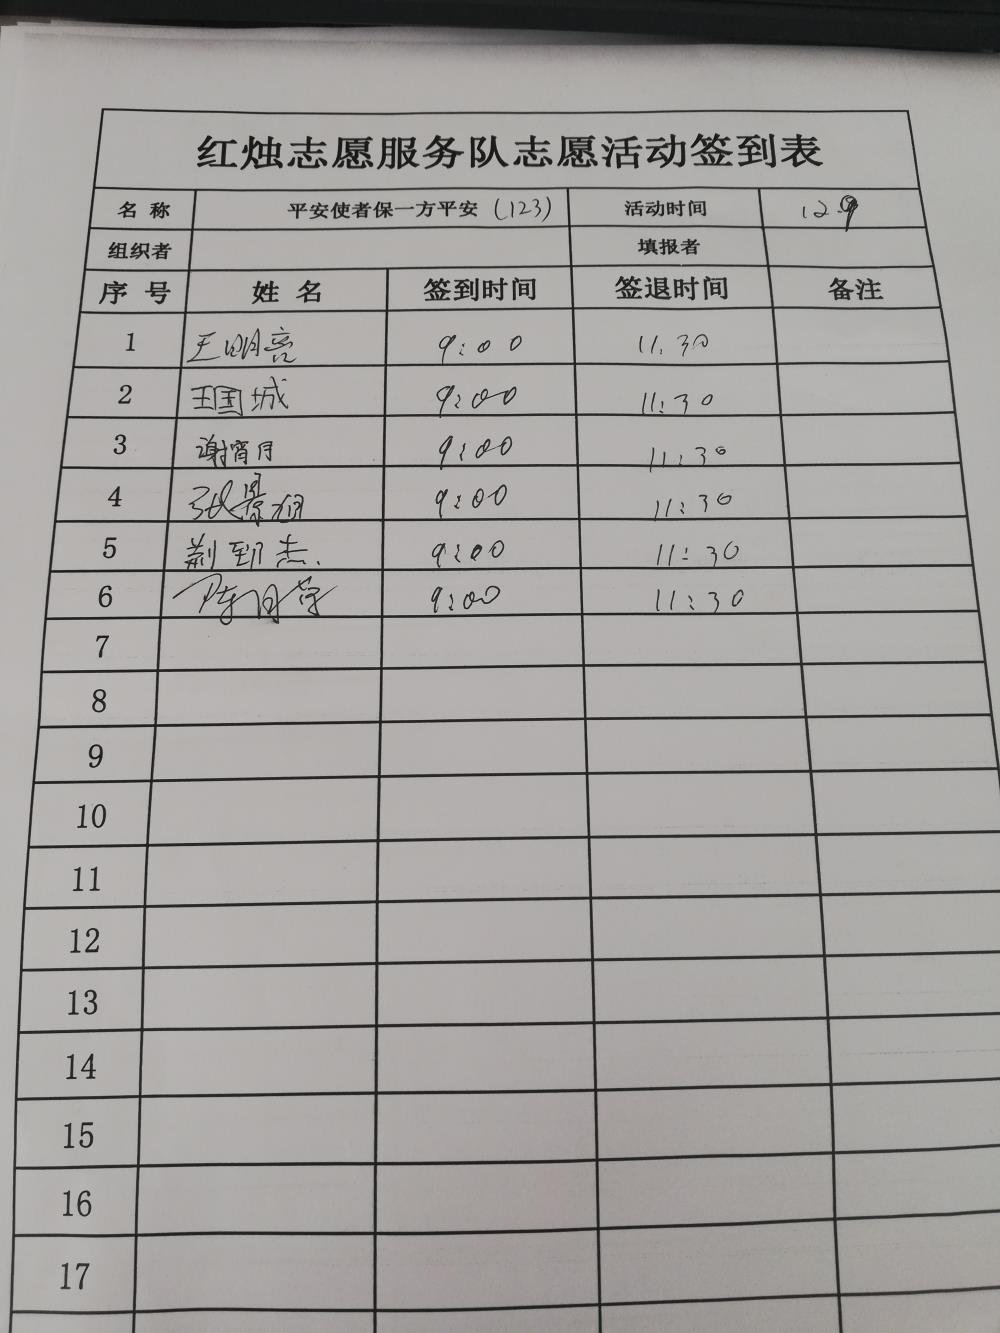 红烛志愿服务队志愿活动签到表
名称 平安使者保一方平安 (123) 活动时间 12.9
组织者 填报者
序号 姓名 签到时间 签退时间 备注
1 王明亮 9:00 11:30
2 王国城 9:00 11:30
3 谢宵月 9:00 11:30
4 张景 9:00 11:30
5 荆到杰 9:00 11:30
6 陈月荣 9:00 11:30
7
8
9
10
11
12
13
14
15
16
17